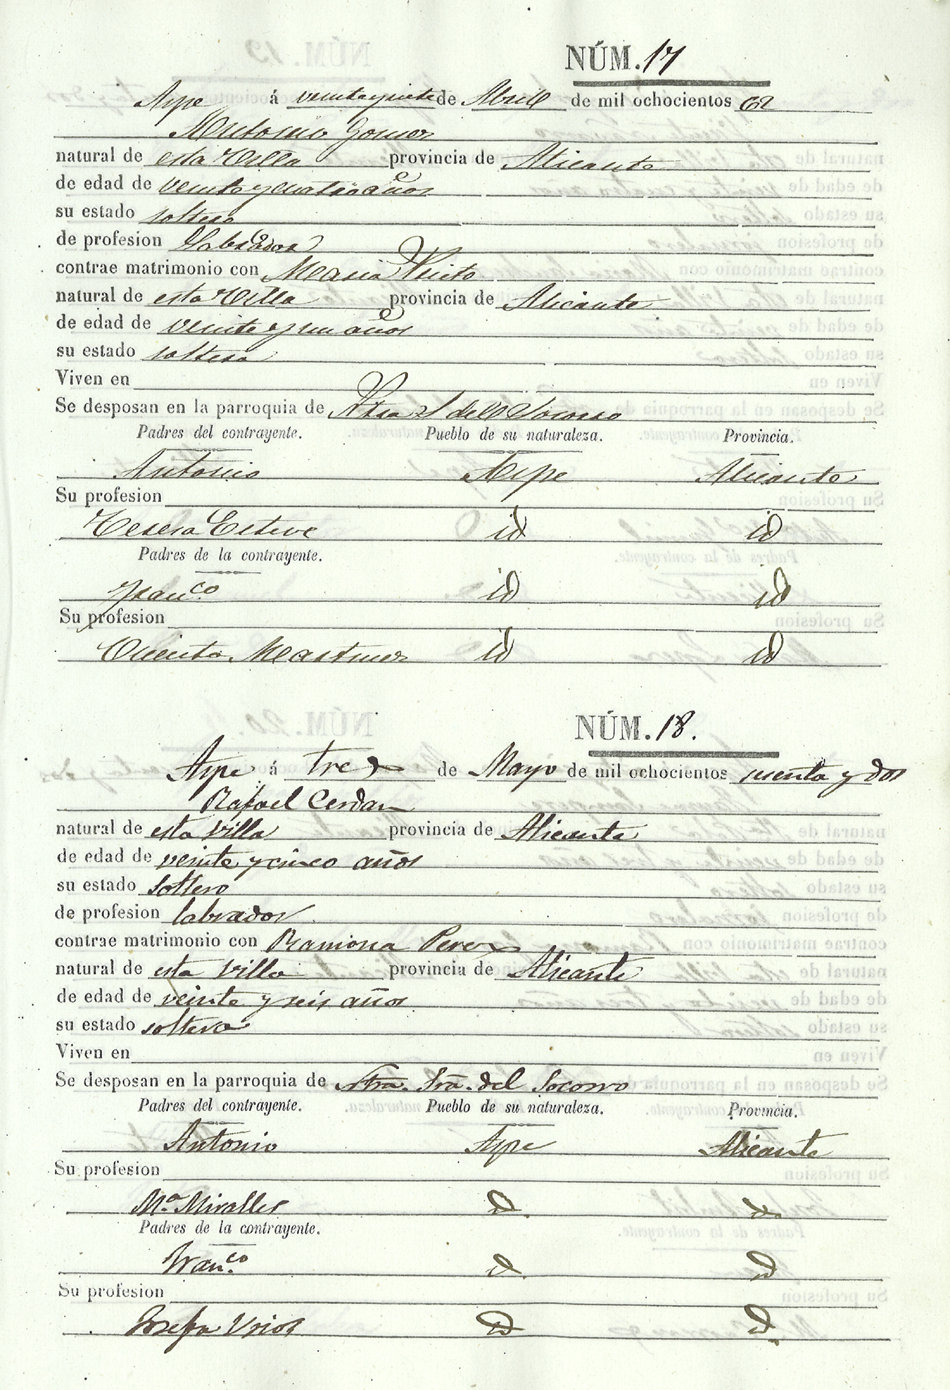 NÚM. 17
Aspe á veinte y siete de Abril de mil ochocientos 62
Antonio Gomez
natural de esta Villa provincia de Alicante
de edad de veinte y cuatro años
su estado soltero
de profesion Labrador
contrae matrimonio con Maria
natural de esta Villa provincia de Alicante
de edad de veinte y un años
su estado soltera
Viven en
Se desposan en la parroquia de Ntra S del Socorro
Padres del contrayente. Pueblo de su naturaleza. Provincia.
Antonio Aspe Alicante
Su profesion
Teresa Esteve id id
Padres de la contrayente.
Franco id id
Su profesion
Martinez id id
NÚM. 18.
Aspe á tres de Mayo de mil ochocientos sesenta y dos
Rafael Cerdan
natural de esta Villa provincia de Alicante
de edad de veinte y cinco años
su estado soltero
de profesion labrador
contrae matrimonio con Ramona Perez
natural de esta Villa provincia de Alicante
de edad de veinte y seis años
su estado soltera
Viven en
Se desposan en la parroquia de Ntra. Sra. del Socorro
Padres del contrayente. Pueblo de su naturaleza. Provincia.
Antonio Aspe Alicante
Su profesion
Ma Miralles id. id.
Padres de la contrayente.
Franco id. id
Su profesion
Josefa Urios id id.